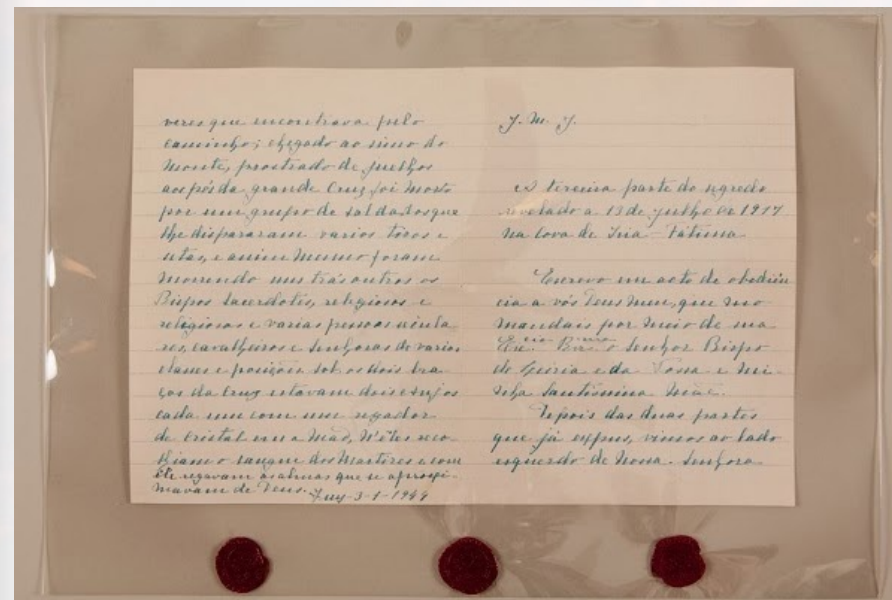 veres que encontrava pelo
caminho; chegado ao cimo do
monte, prostrado de juelhos
aos pés da grande Cruz foi morto
por um grupo de soldados que
lhe dispararam varios tiros e
setas, e assim mesmo foram
morrendo uns trás outros os
Bispos Sacerdotes, religiosos e
religiosas e varias pessoas secula-
res, cavalheiros e senhoras de varias
classes e posições. Sob os dois bra-
ços da Cruz estavam dois Anjos
cada um com um regador
de cristal em a mão, n'êles reco-
lhiam o sangue dos Martires e com
êle regavam as almas que se aproxi-
mavam de Deus. Tuy-3-1-1944
J. M. J.
A terceira parte do segredo
revelado a 13 de julho de 1917
na Cova de Iria-Fátima
Escrevo em acto de obediên
cia a vós Deus meu, que mo
mandais por meio de sua
Ex.cia Rev.ma o Senhor Bispo
de Leiria e da Vossa e mi-
nha Santissima Mãe.
Depois das duas partes
que já expus, vimos ao lado
esquerdo de Nossa Senhora